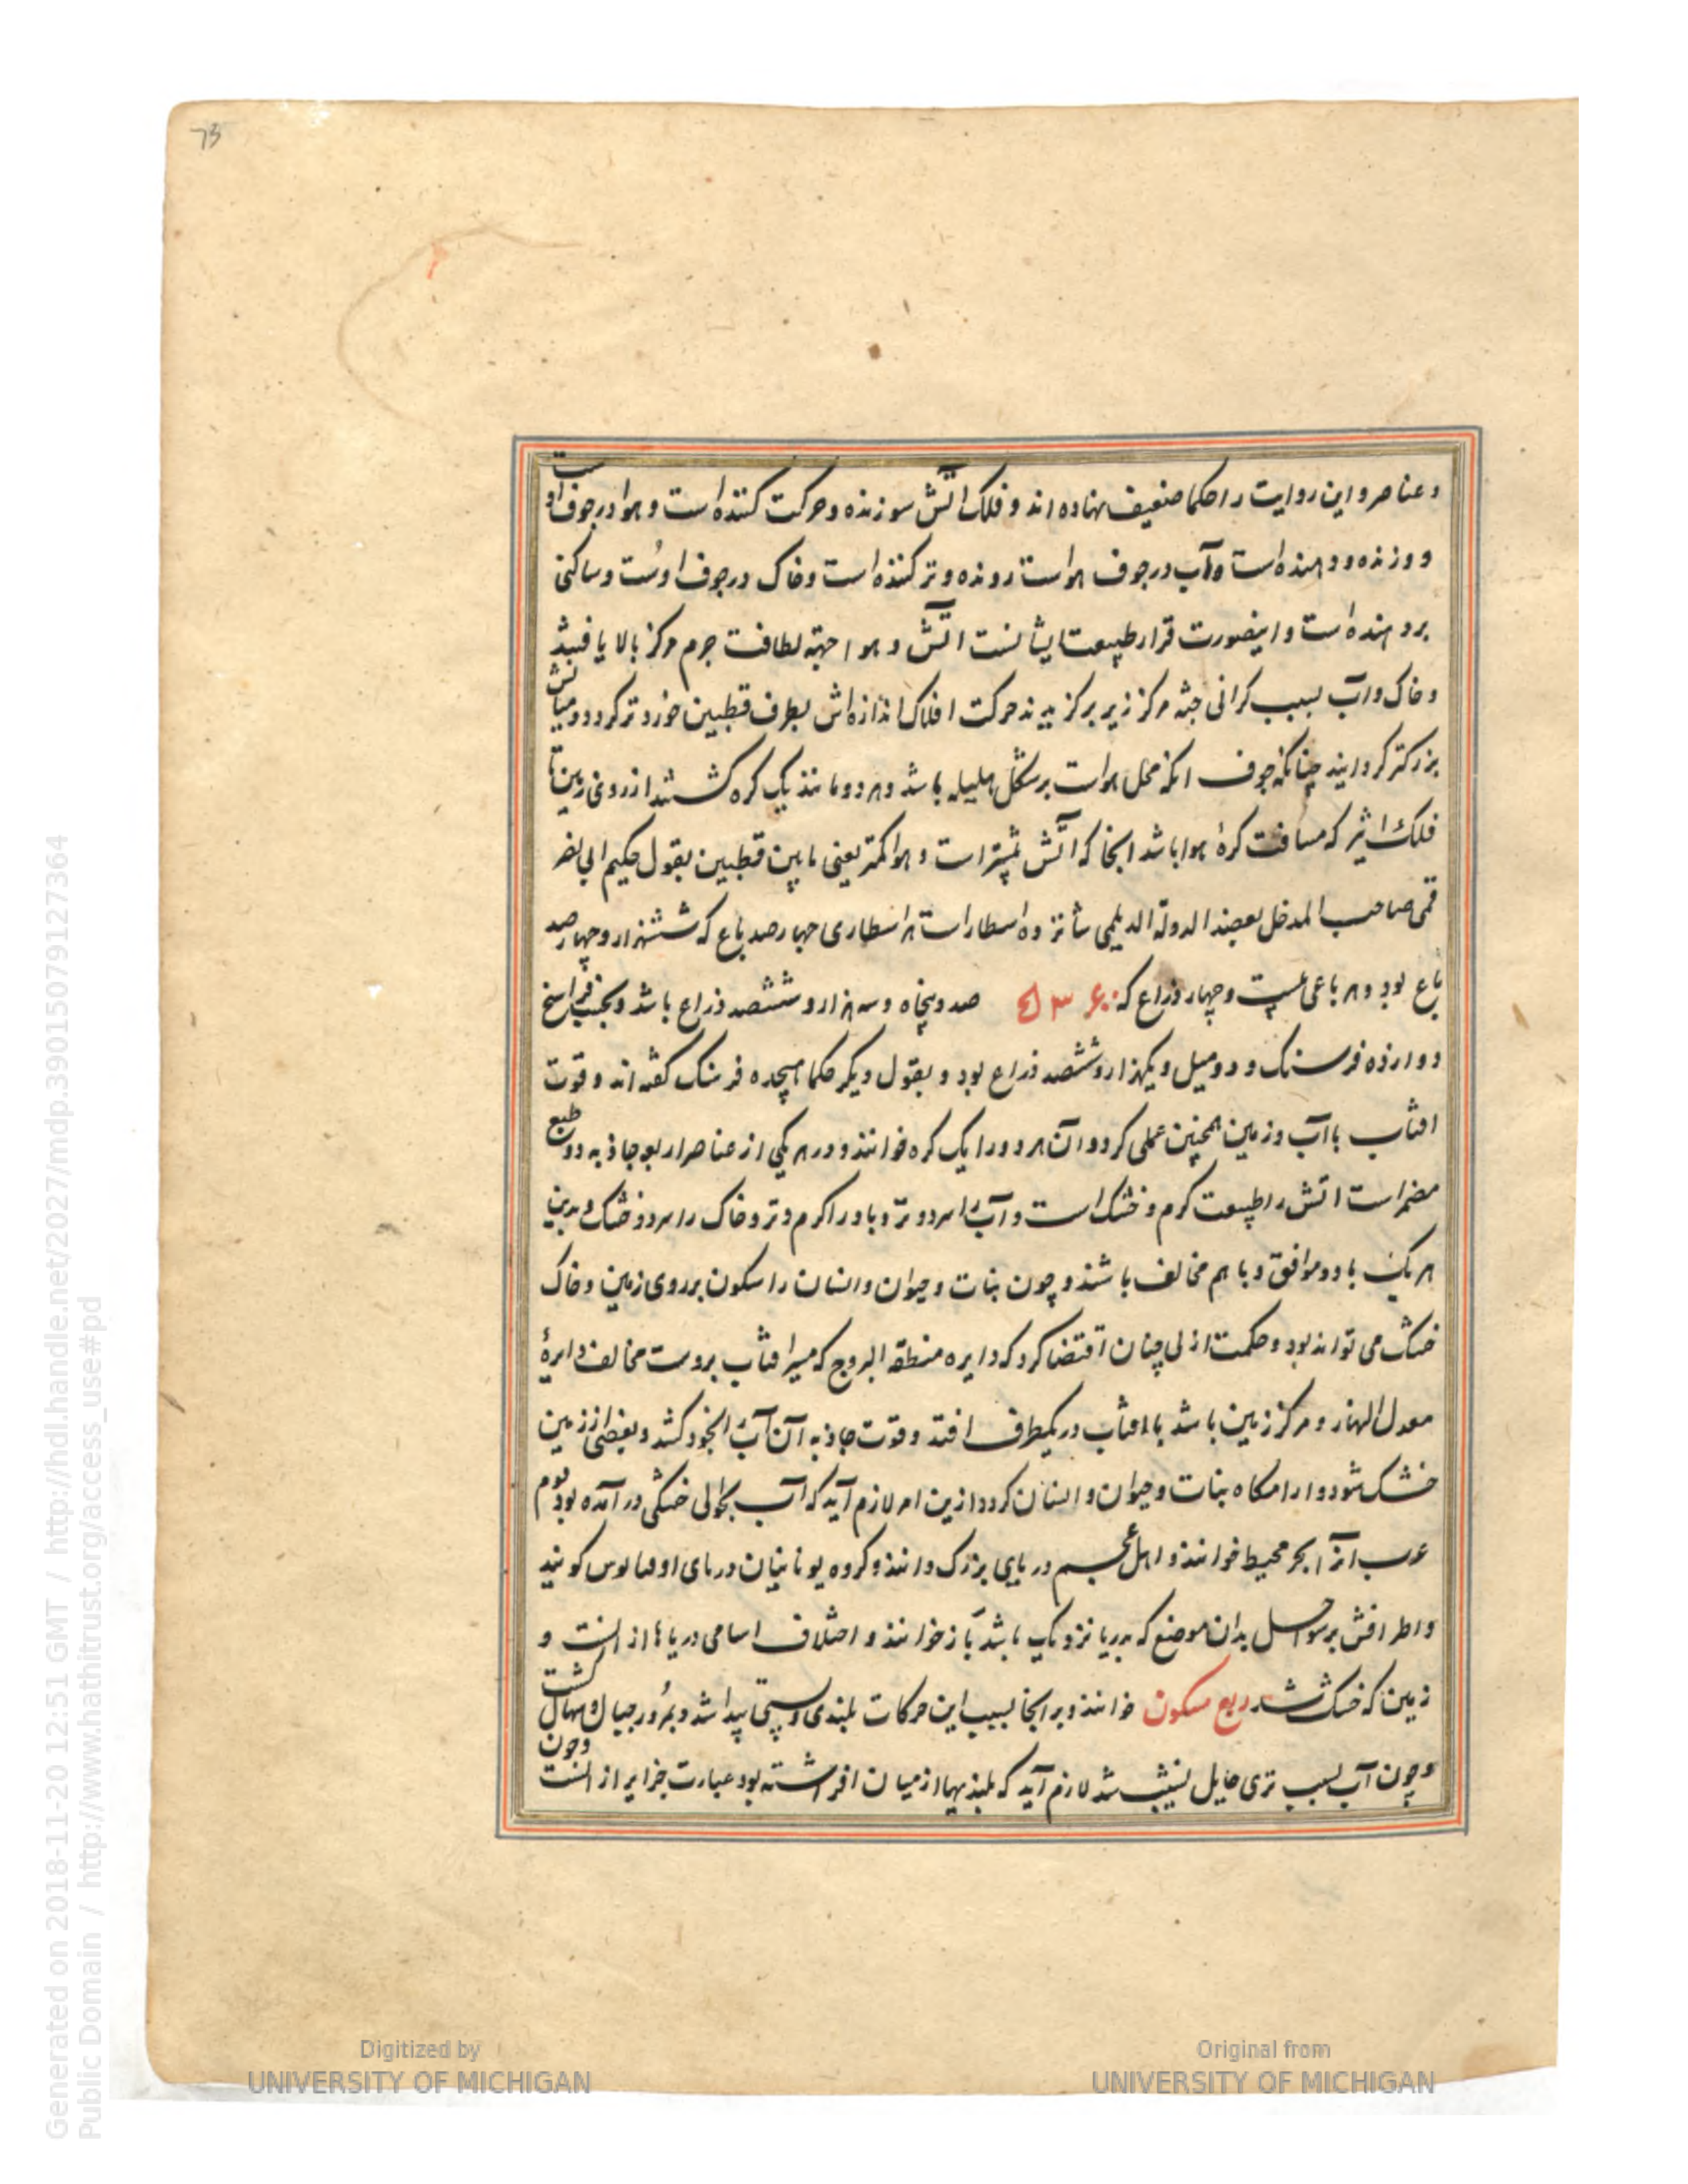 73
و عناصر و این روایت را حکما ضعیف نهاده اند و فلک اتش سوزنده و حرکت کننده است و هوا در جوف اوست
و وزنده و دهنده است و آب در جوف هواست رونده و تر کننده است و خاک در جوف اوست و ساکنی
بردهنده است و اینصورت قرار طبیعت ایشانست اتش و هوا جهة لطافت جرم مرکز بالا یافتند
و خاک و آب بسبب کرانی جثه مرکز زیر حرکت افلاک اندازه اش بطرف قطبین خوردتر کردد و میانش
بزرکتر کردانید چنانکه جوف انکه محل هواست بر شکل هلیله باشد و هر دو مانند یک کره کشتند از روی زمین تا
فلک اثیر که مسافت کرهٔ هوا باشد انجا که اتش بیشتر است و هوا کمتر یعنی مابین قطبین بقول حکیم ابی نصر
قمی صاحب المدخل بعضد الدولة الدیلمی شانزده اسطار است هر اسطاری چهارصد باع که ششهزار و چهارصد
باع بود و هر باعی بیست و چهار ذراع که صد و پنجاه و سه هزار و ششصد ذراع باشد و بحسب فراسخ
دوازده فرسنک و دو میل و یکهزار و ششصد ذراع بود و بقول دیکر حکما هیجده فرسنک کفته اند و قوت
افتاب با آب و زمین همچنین عملی کرد و آن هر دو را یک کره خوانند و در هر یکی از عناصر اربع جاذبه دو طبع
مضمر است اتش را طبیعت کرم و خشک است و آب را سرد و تر و باد را کرم و تر و خاک را سرد و خشک و بدین
هر یک با دو موافق و با هم مخالف باشند و چون نبات و حیوان و انسان را سکون بر روی زمین و خاک
خشک می تواند بود و حکمت ازلی چنان اقتضا کرد که دایره منطقه البروج که مسیر افتاب بروست مخالف دایرهٔ
معدل النهار و مرکز زمین باشد با افتاب در یکطرف افتد و قوت جاذبه آن آب را بخود کشد و بعضی از زمین
خشک شود و ارامکاه نبات و حیوان و انسان کردد ازین امر لازم آید که آب بحوالی خشکی در آمده بود قوم
عرب انرا بحر محیط خوانند و اهل عجم دریایی بزرک دانند و کروه یونانیان دریای اوقیانوس کویند
و اطرافش بر سواحل بدان موضع که بدریا نزدیک باشد باز خوانند و اختلاف اسامی دریاها از انست و
زمین که خشک شد ربع مسکون خوانند و بر انجا بسبب این حرکات بلندی و پستی پیدا شد و بمرور جبال و سهال کشت
و چون آب بسبب تری مایل نشیب شد لازم آید که بلندیها از میان افراشته بود عبارت جزایر از انست و چون
Generated on 2018-11-20 12:51 GMT / http://hdl.handle.net/2027/mdp.39015079127364
Public Domain / http://www.hathitrust.org/access_use#pd
Digitized by
UNIVERSITY OF MICHIGAN
Original from
UNIVERSITY OF MICHIGAN